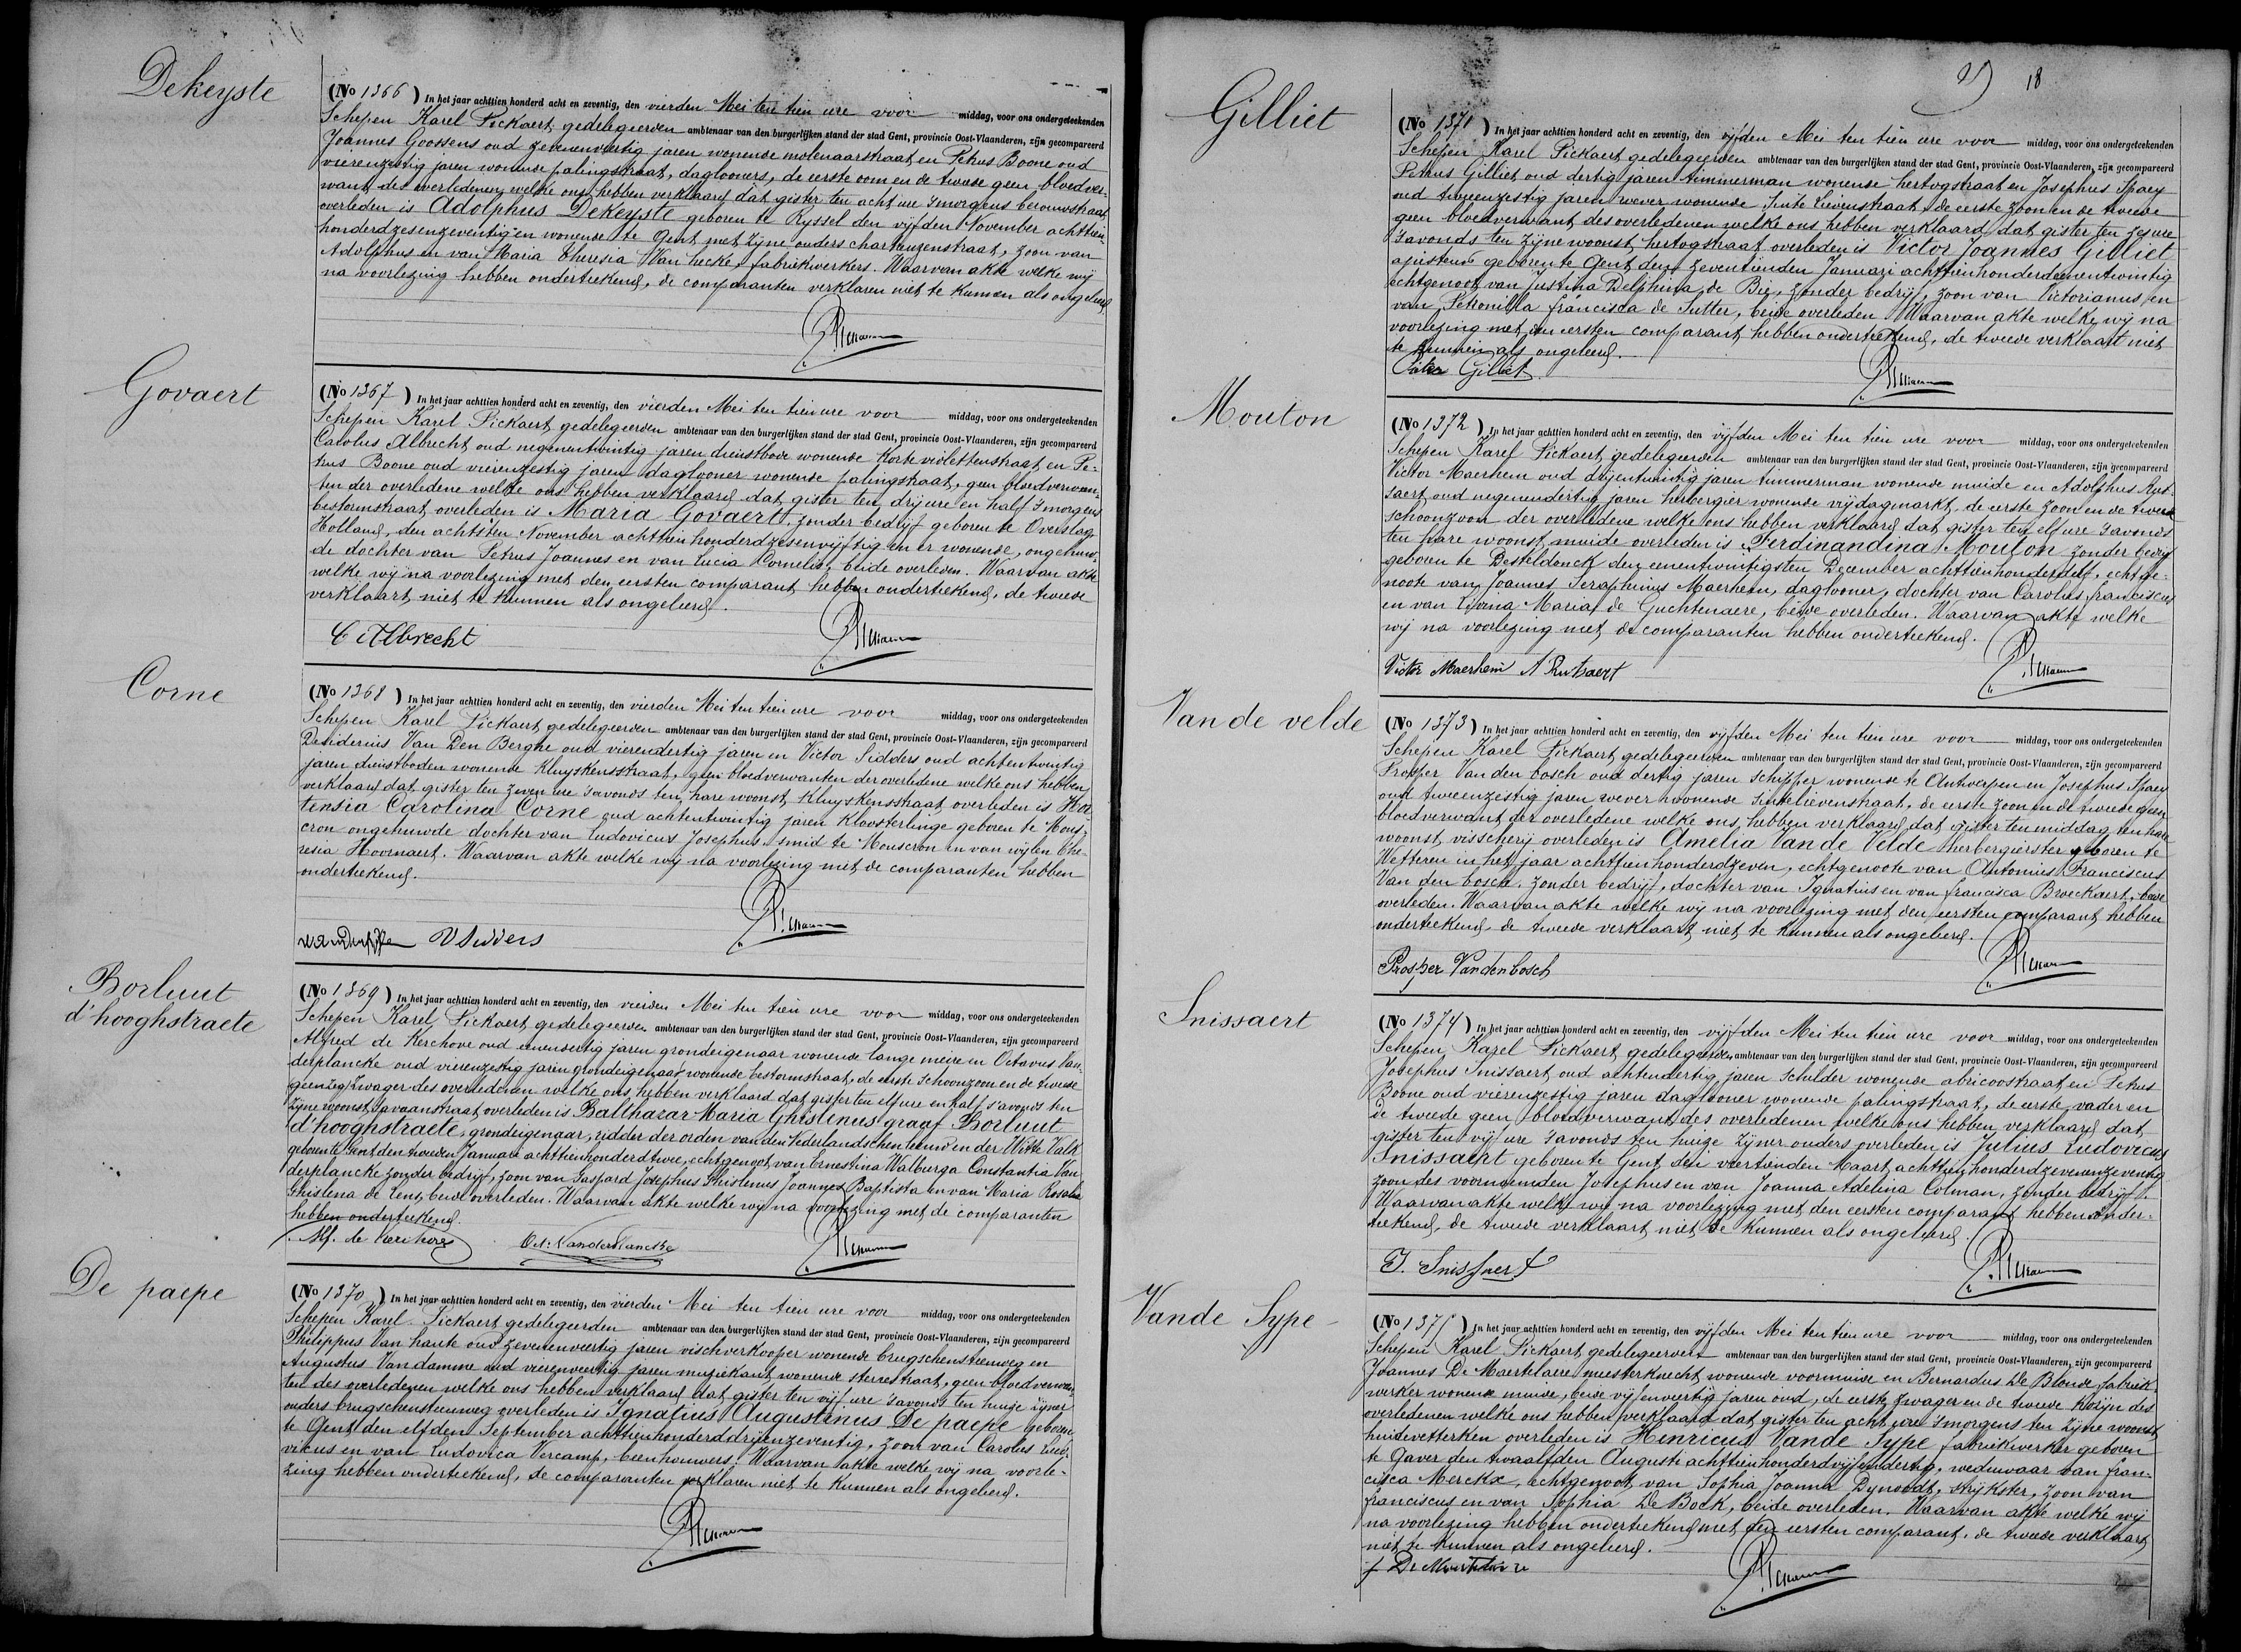 Dekeyste
(No 1366) In het jaar achttien honderd acht en zeventig, den vierden Mei ten tien ure voor middag, voor ons ondergeteekenden
Schepen Karel Pickaert gedelegeerden ambtenaar van den burgerlijken stand der stad Gent, provincie Oost-Vlaanderen, zijn gecompareerd
Joannes Goossens oud zevenenveertig jaren wonende molenaarstraat en Petrus Boone oud
vierenzestig jaren wonende palingstraat, dagloners, de eerste oom en de tweede geen bloedver-
want des overledenen, welke ons hebben verklaard dat gister ten acht ure smorgens
overleden is Adolphus Dekeyste geboren te Ryssel den vijfden November achttien-
honderdzesenzeventig en wonende te Gent met zijne ouders chartreuzenstraat, zoon van
Adolphus en van Maria Theresia Van hecke, fabriekwerkers. Waarvan akte welke wij
na voorlezing hebben onderteekend, de comparanten verklaren niet te kunnen als ongeleerd
Govaert
(No 1367) In het jaar achttien honderd acht en zeventig, den vierden Mei ten tien ure voor middag, voor ons ondergeteekenden
Schepen Karel Pickaert gedelegeerden ambtenaar van den burgerlijken stand der stad Gent, provincie Oost-Vlaanderen, zijn gecompareerd
Carolus Albrecht oud negenentwintig jaren dienstbode wonende Korte violettenstraat en Pe-
trus Boone oud vierenzestig jaren daglooner wonende palingstraat, geen bloedverwan-
ten der overledene welke ons hebben verklaard dat gister ten drij ure en half smorgens
bestormstraat overleden is Maria Govaert, zonder bedrijf geboren te Overslag
Holland, den achtsten November achttien honderdzesenvijftig en er wonende, ongehuw-
de dochter van Petrus Joannes en van Lucia Cornelis, beide overleden. Waarvan akte
welke wij na voorlezing met den eersten comparant hebben onderteekend, de tweede
verklaart niet te kunnen als ongeleerd.
C Albrecht
Corne
(No 1368) In het jaar achttien honderd acht en zeventig, den vierden Mei ten tien ure voor middag, voor ons ondergeteekenden
Schepen Karel Pickaert gedelegeerden ambtenaar van den burgerlijken stand der stad Gent, provincie Oost-Vlaanderen, zijn gecompareerd
Desiderius Van Den Berghe oud vierendertig jaren en Victor Sidders oud achtentwintig
jaren dienstboden wonende Kluyskensstraat, geen bloedverwanten der overledene welke ons hebben
verklaard dat gister ten zeven ure savonds ten hare woonst, Kluyskensstraat overleden is Hor-
tensia Carolina Corne oud achtentwintig jaren Kloosterlinge geboren te Mous-
cron ongehuwde dochter van Ludovicus Josephus, smid te Mouscron en van wijlen The-
resia Hoornaert. Waarvan akte welke wij na voorlezing met de comparanten hebben
onderteekend.
V Sidders
Borluut
d'hooghstraete
(No 1369) In het jaar achttien honderd acht en zeventig, den vierden Mei ten tien ure voor middag, voor ons ondergeteekenden
Schepen Karel Pickaert gedelegeerden ambtenaar van den burgerlijken stand der stad Gent, provincie Oost-Vlaanderen, zijn gecompareerd
Alfred de Kerchove oud eenendertig jaren grondeigenaar wonende lange meire en Octavus Van-
derplancke oud vierenzestig jaren grondeigenaar wonende bestormstraat, de eerste schoonzoon en de tweede
zwager des overledenen welke ons hebben verklaard dat gister ten elf ure en half s'avonds ten
zijne woonst Savaanstraat overleden is Balthazar Maria Ghislenus graaf Borluut
d'hooghstraete, grondeigenaar, ridder der orden van den Nederlandschen leeuw en der Witte Valk
geboren te Gent den tweeden Januari achttienhonderdtwee, echtgenoot van Ernestina Walburga Constantia Van
derplancke zonder bedrijf, zoon van Gaspard Josephus Ghislenus Joannes Baptista en van Maria Rosalia
Ghislena de Lens, beide overleden. Waarvan akte welke wij na voorlezing met de comparanten
hebben onderteekend.
Alf. de Kerchove Oct: Vanderplancke
De paepe
(No 1370) In het jaar achttien honderd acht en zeventig, den vierden Mei ten tien ure voor middag, voor ons ondergeteekenden
Schepen Karel Pickaert gedelegeerden ambtenaar van den burgerlijken stand der stad Gent, provincie Oost-Vlaanderen, zijn gecompareerd
Philippus Van haute oud zevenenveertig jaren vischverkooper wonende brugschensteenweg en
Augustus Vandamme oud vierenveertig jaren muziekant wonende sterrestraat, geen bloedverwan-
ten des overledenen welke ons hebben verklaard dat gister ten vijf ure savonds ten huize zijner
ouders brugschensteenweg overleden is Ignatius Augustinus De paepe geboren
te Gent den elfden September achttienhonderddrijenzeventig, zoon van Carolus Ludo-
vicus en van Ludovica Vercamp, beenhouwers. Waarvan akte welke wij na voorle-
zing hebben onderteekend, de comparanten verklaren niet te kunnen als ongeleerd.
18
Gilliet
(No 1371) In het jaar achttien honderd acht en zeventig, den vijfden Mei ten tien ure voor middag, voor ons ondergeteekenden
Schepen Karel Pickaert gedelegeerden ambtenaar van den burgerlijken stand der stad Gent, provincie Oost-Vlaanderen, zijn gecompareerd
Petrus Gilliet oud dertig jaren timmerman wonende hertogstraat en Josephus Spaey
oud tweeenzestig jaren wever wonende Sinte Lievenstraat, de eerste zoon en de tweede
geen bloedverwant des overledenen welke ons hebben verklaard dat gister ten zes ure
savonds ten zijne woonst, hertogstraat overleden is Victor Joannes Gilliet
geboren te Gent den zeventienden Januari achttienhonderdeenentwintig
echtgenoot van Justina Delphina de Bie, zonder bedrijf, zoon van Victorianus en
van Petronilla francisca de Sutter, beide overleden. Waarvan akte welke wij na
voorlezing met den eersten comparant hebben onderteekend, de tweede verklaart niet
te kunnen als ongeleerd.
Gilliet
Mouton
(No 1372) In het jaar achttien honderd acht en zeventig, den vijfden Mei ten tien ure voor middag, voor ons ondergeteekenden
Schepen Karel Pickaert gedelegeerden ambtenaar van den burgerlijken stand der stad Gent, provincie Oost-Vlaanderen, zijn gecompareerd
Victor Maerhem oud drijentwintig jaren timmerman wonende muide en Adolphus Rut-
saert oud negenendertig jaren herbergier wonende vrijdagmarkt, de eerste zoon en de tweede
schoonzoon der overledene welke ons hebben verklaard dat gister ten elf ure savonds
ten hare woonst muide overleden is Ferdinandina Mouton zonder bedrijf
geboren te Desteldonck den eenentwintigsten December achttienhonderdelf, echtge-
noote van Joannes Seraphinus Maerhem, daglooner, dochter van Carolus franciscus
en van Livina Maria de Guchtenaere, beide overleden. Waarvan akte welke
wij na voorlezing met de comparanten hebben onderteekend.
Victor Maerhem A Rutsaert
Van de velde
(No 1373) In het jaar achttien honderd acht en zeventig, den vijfden Mei ten tien ure voor middag, voor ons ondergeteekenden
Schepen Karel Pickaert gedelegeerden ambtenaar van den burgerlijken stand der stad Gent, provincie Oost-Vlaanderen, zijn gecompareerd
Prosper Van den bosch oud dertig jaren schipper wonende te Antwerpen en Josephus Spaey
oud tweeenzestig jaren wever wonende Sintelievenstraat, de eerste zoon en de tweede geen
bloedverwant der overledene welke ons hebben verklaard dat gister ten middag ten hare
woonst visscherij overleden is Amelia Van de Velde herbergierster geboren te
Wetteren in het jaar achttienhonderdzeven, echtgenoote van Antonius Franciscus
Van den bosch, zonder bedrijf, dochter van Ignatius en van francisca Broeckaert, beide
overleden. Waarvan akte welke wij na voorlezing met den eersten comparant hebben
onderteekend, de tweede verklaart niet te kunnen als ongeleerd.
Prosper Vandenbosch
Snissaert
(No 1374) In het jaar achttien honderd acht en zeventig, den vijfden Mei ten tien ure voor middag, voor ons ondergeteekenden
Schepen Karel Pickaert gedelegeerden ambtenaar van den burgerlijken stand der stad Gent, provincie Oost-Vlaanderen, zijn gecompareerd
Josephus Snissaert oud achtendertig jaren schilder wonende abricoostraat en Petrus
Boone oud vierenzestig jaren daglooner wonende palingstraat, de eerste vader en
de tweede geen bloedverwant des overledenen welke ons hebben verklaard dat
gister ten vijf ure savonds ten huize zijner ouders overleden is Julius Ludovicus
Snissaert geboren te Gent den veertienden Maart achttienhonderdzevenenzeventig
zoon des voornoemden Josephus en van Joanna Adelina Colman, zonder bedrijf.
Waarvan akte welke wij na voorlezing met den eersten comparant hebben onder-
teekend, de tweede verklaart niet te kunnen als ongeleerd.
J. Snissaert
Vande Sype
(No 1375) In het jaar achttien honderd acht en zeventig, den vijfden Mei ten tien ure voor middag, voor ons ondergeteekenden
Schepen Karel Pickaert gedelegeerden ambtenaar van den burgerlijken stand der stad Gent, provincie Oost-Vlaanderen, zijn gecompareerd
Joannes De Maertelaere meesterknecht wonende voormuide en Bernardus De Blonde fabriek-
werker wonende muide, beide vijfenveertig jaren oud, de eerste zwager en de tweede kozijn des
overledenen welke ons hebben verklaard dat gister ten acht ure smorgens ten zijne woonst
huidevetterken overleden is Henricus Vande Sype fabriekwerker geboren
te Gaver den twaalfden Auguste achttienhonderdvijfendertig, weduwaar van fran-
cisca Merckx, echtgenoot van Sophia Joanna Dynoodt, strijkster, zoon van
franciscus en van Sophia De Bock, beide overleden. Waarvan akte welke wij
na voorlezing hebben onderteekend met den eersten comparant, de tweede verklaart
niet te kunnen als ongeleerd.